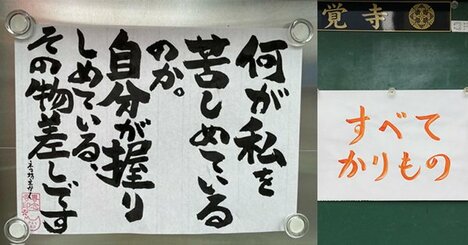 何が私を
苦しめている
のか。
自分が握り
しめている、
その物差しです
覚寺
すべて
かりもの